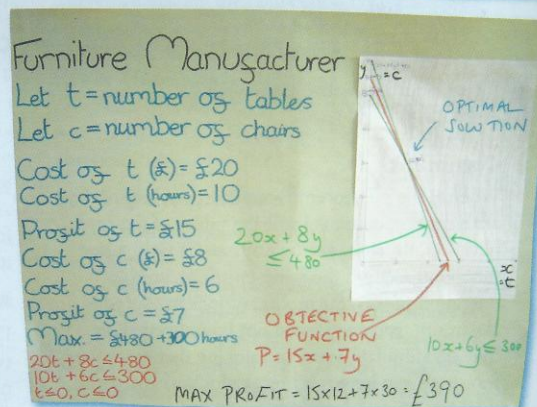 Furniture Manufacturer
Let t = number of tables
Let c = number of chairs
Cost of t (£) = £20
Cost of t (hours) = 10
Profit of t = £15
Cost of c (£) = £8
Cost of c (hours) = 6
Profit of c = £7
Max. = £480 + 300 hours
20t + 8c ≤ 480
10t + 6c ≤ 300
t ≤ 0, c ≤ 0
y
= c
OPTIMAL
SOLUTION
20x + 8y
≤ 480
x
= t
OBTECTIVE
FUNCTION
P = 15x + 7y
10x + 6y ≤ 300
MAX PROFIT = 15x12 + 7x30 = £390